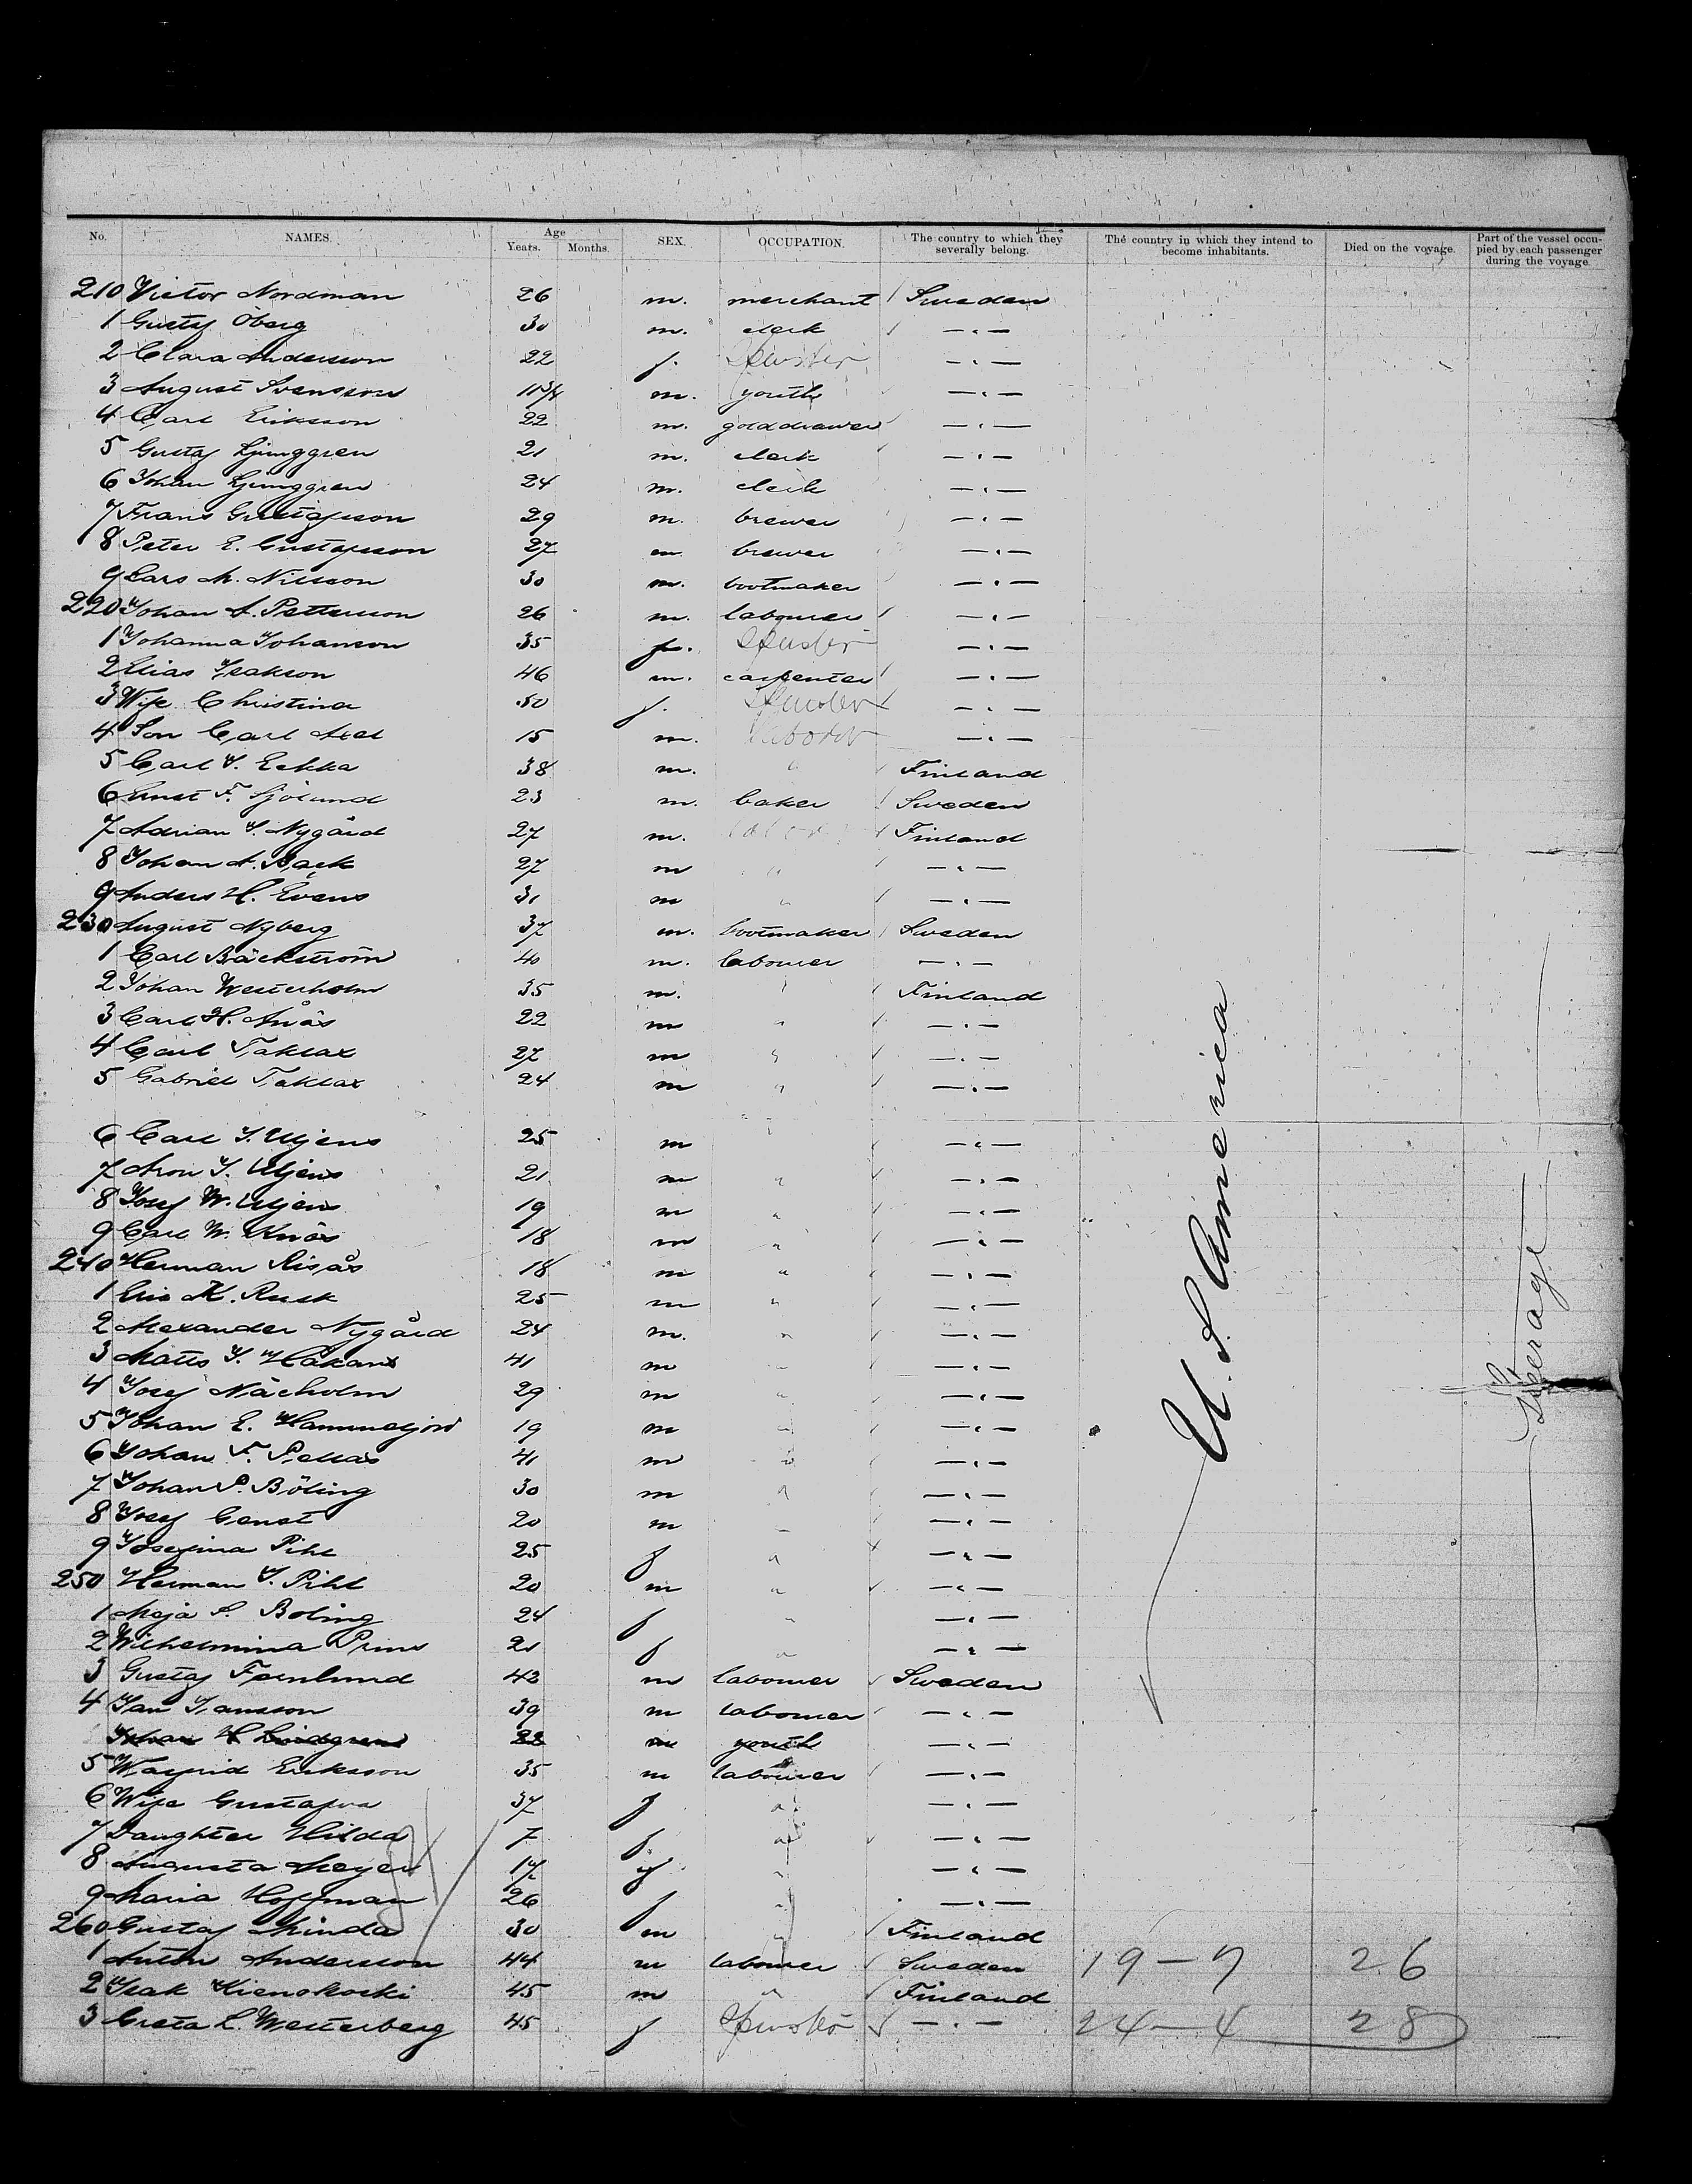 No. NAMES. Age Years. Months. SEX. OCCUPATION. The country to which they severally belong. The country in which they intend to become inhabitants. Died on the voyage. Part of the vessel occupied by each passenger during the voyage.
210 Victor Nordman 26 m. merchant / Sweden
1 Gustaf Öberg 30 m. clerk / — " —
2 Clara Anderson 22 f. Spinster — " —
3 August Svensson 11 3/4 m. youth — " —
4 Carl Eriksson 22 m. golddrawer — " —
5 Gustaf Ljunggren 21 m. clerk — " —
6 Johan Ljunggren 24 m. clerk — " —
7 Frans Gustafsson 29 m. brewer — " —
8 Peter E. Gustafsson 27 m. brewer — " —
9 Lars M. Nilsson 30 m. bootmaker — " —
220 Johan A. Petterson 26 m. labourer / — " —
1 Johanna Johanson 35 f. Spinster — " —
2 Elias Isakson 46 m. carpenter / — " —
3 Wife Christina 50 f. Spinster — " —
4 Son Carl Axel 15 m. labourer — " —
5 Carl J. Eckka 38 m. " / Finland
6 Ernst F. Sjölund 23 m. baker / Sweden
7 Adrian J. Nygård 27 m. labor / Finland
8 Johan A. Back 27 m " / — " —
9 Anders H. Evens 31 m " / — " —
230 August Nyberg 37 m. bootmaker / Sweden
1 Carl Bäckström 40 m. labourer — " —
2 Johan Westerholm 35 m. " Finland
3 Carl H. 22 m " / — " —
4 Carl Taklax 27 m " / — " —
5 Gabriel Taklax 24 m " / — " —
6 Carl J. Uljens 25 m " — " —
7 Aron J. Uljens 21 m " — " —
8 Josef W. Uljens 19 m " — " —
9 Carl W. 18 m " — " —
240 Herman Risås 18 m " — " —
1 Eric K. Rusk 25 m " — " —
2 Alexander Nygård 24 m. " — " —
3 Matts J. Håkans 41 m " — " —
4 Josef Näsholm 29 m " — " —
5 Johan E. 19 m " — " —
6 Johan F. Pellas 41 m " — " —
7 Johan P. Böling 30 m " — " —
8 Josef 20 m — " —
9 Josefina Pihl 25 f " — " —
250 Herman J. Pihl 20 m " — " —
1 Maja S. Boling 24 f " — " —
2 Wilhelmina Prins 21 f " — " —
3 Gustaf Fernlund 42 m labourer / Sweden
4 Jan Jansson 39 m labourer / — " —
Johan H Lindgren 22 m youth — " —
5 Eriksson 35 m labourer — " —
6 Wife Gustafva 37 f " — " —
7 Daughter Hilda 7 f " — " —
8 Augusta Meyer 17 f " — " —
9 Maria Hoffman 26 f " — " —
260 Gustaf 30 m " / Finland
1 Anton Anderson 44 m labourer / Sweden 19 - 7 26
2 Isak 45 m " / Finland
3 Greta L. Westerberg 45 f Spinster — " — 24 - 4 28
U. S. America
Steerage